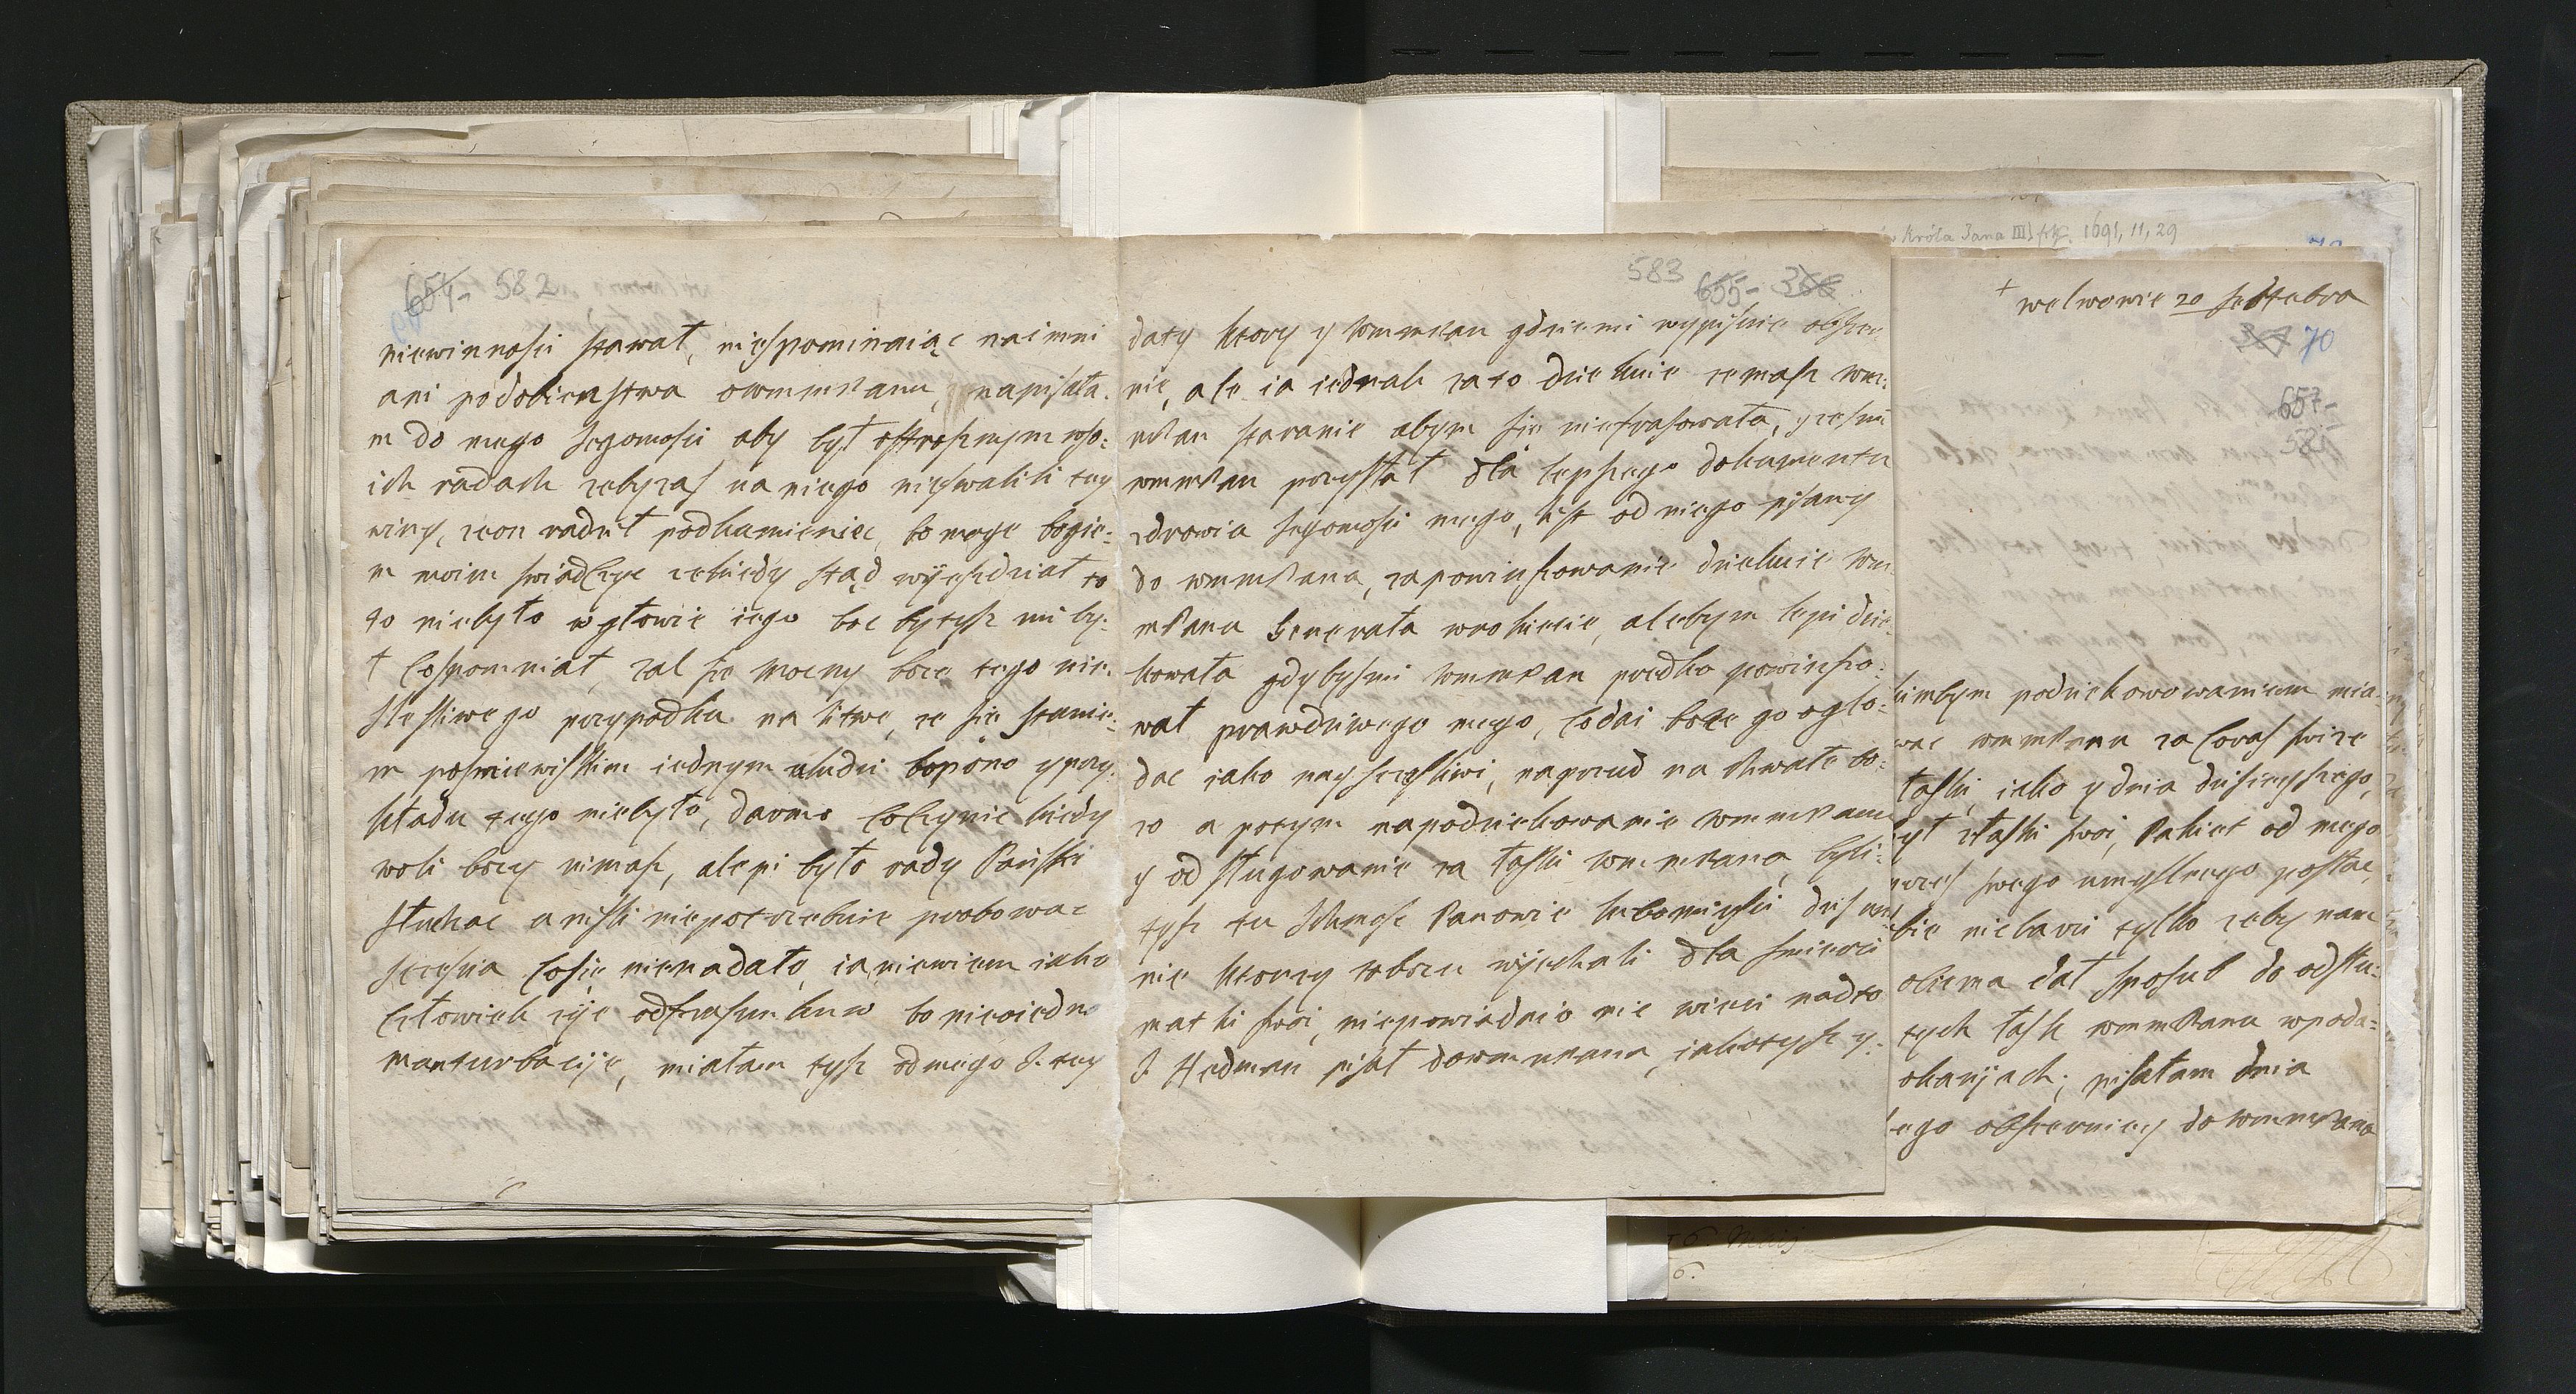 654- 582
niewinnosci stawał, niespominaiąc naimni
ani podobienstwa owmmPanu, napisała.
m do mego Jegomosci aby był ostroznym wso:
ich radach zebyzas na niego nieswalili tey
winy, zeon radził podkamieniec, bo mogę bogie:
m moim swiadczyc zekiedy stąd wyiezdzał to
to niebyło wgłowie iego boc bytysz mi by:
ł cospomniał, zal sie mocny boze tego nie:
sczesliwego przypadku na litwę, ze się stanie:
m posmiewiskiem iednym uludzi bopono yprzy:
kładu tego niebyło, darmo coczynic kiedy
woli bozy nimasz, alepi było rady Pański
słuchac a niski niepotrzebnie probowac
sczescia cosię nienadało, ianiewiem iako
człowiek zyie odfrasunkuw bo niewiedno
manturbacyie, miałam tysz odmego J. tey
583 655- 366
daty ktory y wmmPan gdziemi wypisuie obszer
nie, ale ia iednak zato dziekuie zemasz wm:
mPan staranie abym sie niefrasowała, yzesmi
wmmPan przysłał dla lepszego dokumentu
zdrowia Jegomosci mego, list od niego pisany
do wmmPana, zapowinszowanie dziekuie wm
mPanu Generała wrokiecie, alebym lepi dzie:
kowała gdybysmi wmmPan predko powinszo:
wał prawdziwego mego, codai boze go oglo:
dac iako nayszczesliwi, naprzud na chwałe bo:
zo a potym napodziekowanie wmmPanu
y odsługowanie za łaski wmmPana, byli:
tysz tu Ichmosc Panowie lubomirsci dis
nie ktorzy zobozu wyiechali dla smierci
matki swoi, niepowiadaio nic wieci nadto
J Hedman pisał dowmmPana, iakotysz y:
w Króla Jana III] 1691, 11, 29
+ welwowie 20 septebra
70
657-
kimbym podziekowowaniem mia
wac wmmPanu za coras swize
łaski, iako y dnia dzisieyszego,
łaski swoi, Pakiet od mego
przes swego umyslnego posłac,
bie niebawi tylko zeby nam
oliema dał sposub do odsłu:
tych łask wmmPana wpoda:
okazyiach; pisałam dnia
ego obszerniey dowmmPana